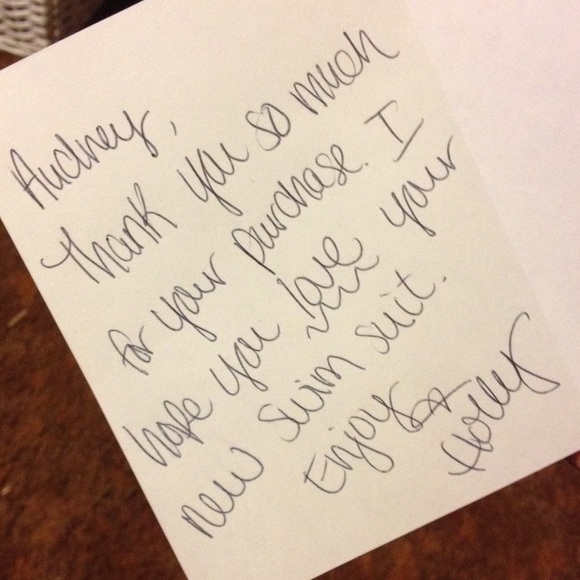 Audrey,
Thank you so much
for your purchase. I
hope you love your
new swim suit.
Enjoy
Holly